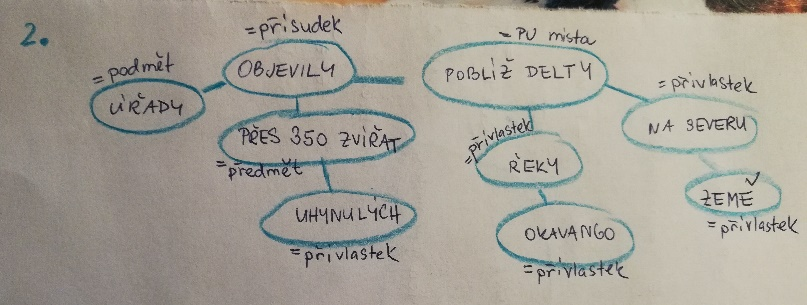 2.
=podmět
ÚŘADY
=přísudek
OBJEVILY
PŘES 350 ZVÍŘAT
=předmět
UHYNULÝCH
=přívlastek
=PU místa
POBLÍŽ DELTY
=přívlastek
ŘEKY
OKAVANGO
=přívlastek
=přívlastek
NA SEVERU
ZEMĚ
=přívlastek